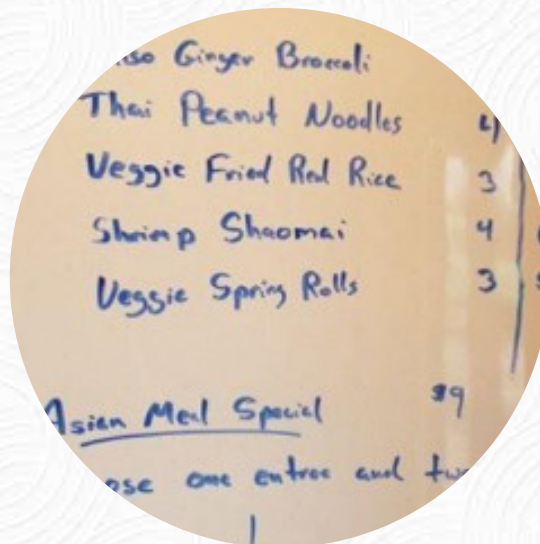 Ginger Broccoli
Thai Peanut Noodles 4
Veggie Fried Red Rice 3
Shrimp Shaomai 4
Veggie Spring Rolls 3
Asian Meal Special $9
one entree and